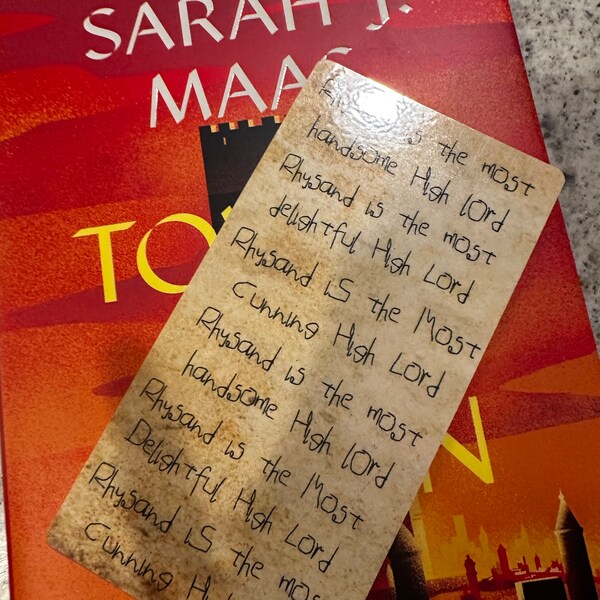 SARAH J.
MAAS
TO
N
is the most
handsome High lord
Rhysand is the most
delightful High Lord
Rhysand iS the Most
Cunning High Lord
Rhysand is the most
handsome High lord
Rhysand is the Most
Delightful High Lord
Rhysand iS the mos
Cunning H